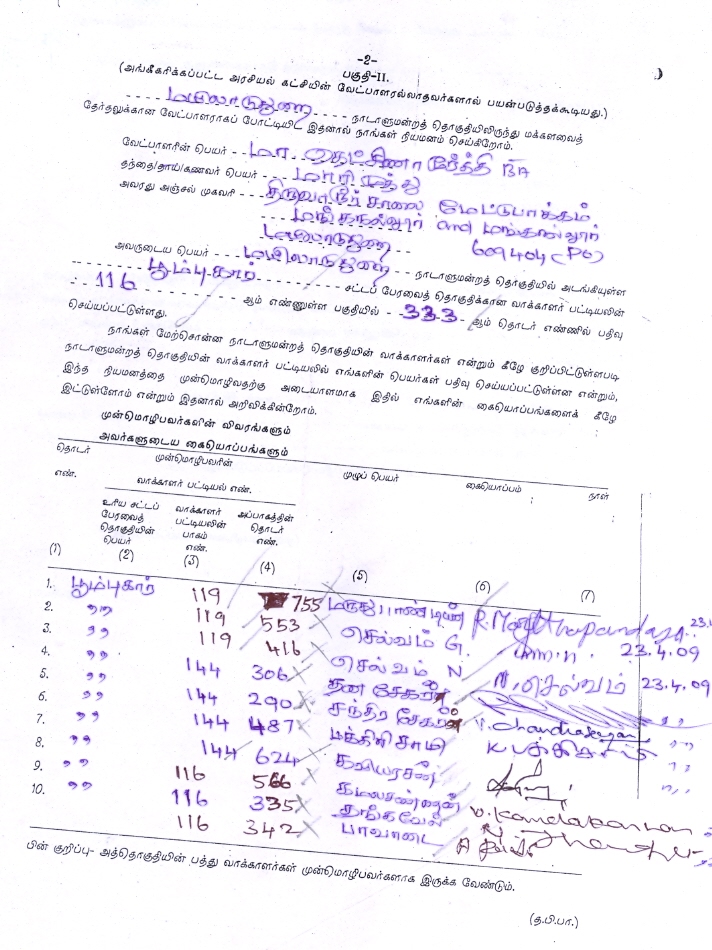 -2-
பகுதி-II.
(அங்கீகரிக்கப்பட்ட அரசியல் கட்சியின் வேட்பாளரல்லாதவர்களால் பயன்படுத்தக்கூடியது.)
மயிலாடுதுறை நாடாளுமன்றத் தொகுதியிலிருந்து மக்களவைத்
தேர்தலுக்கான வேட்பாளராகப் போட்டியிட இதனால் நாங்கள் நியமனம் செய்கிறோம்.
வேட்பாளரின் பெயர் மா தெட்சிணா மூர்த்தி BA
தந்தை/தாய்/கணவர் பெயர் மாரி முத்து
அவரது அஞ்சல் முகவரி சாலை மேட்டுபாக்கம்
and
மயிலாடுதுறை 609404 (PO)
அவருடைய பெயர் மயிலாடுதுறை நாடாளுமன்றத் தொகுதியில் அடங்கியுள்ள
பூம்புகார் சட்டப் பேரவைத் தொகுதிக்கான வாக்காளர் பட்டியலின்
116 ஆம் எண்ணுள்ள பகுதியில் 333 ஆம் தொடர் எண்ணில் பதிவு
செய்யப்பட்டுள்ளது.
நாங்கள் மேற்சொன்ன நாடாளுமன்றத் தொகுதியின் வாக்காளர்கள் என்றும் கீழே குறிப்பிட்டுள்ளபடி
நாடாளுமன்றத் தொகுதியின் வாக்காளர் பட்டியலில் எங்களின் பெயர்கள் பதிவு செய்யப்பட்டுள்ளன என்றும்,
இந்த நியமனத்தை முன்மொழிவதற்கு அடையாளமாக இதில் எங்களின் கையொப்பங்களைக் கீழே
இட்டுள்ளோம் என்றும் இதனால் அறிவிக்கின்றோம்.
முன்மொழிபவர்களின் விவரங்களும்
அவர்களுடைய கையொப்பங்களும்
தொடர் எண். முன்மொழிபவரின் முழுப் பெயர் கையொப்பம் நாள்
வாக்காளர் பட்டியல் எண்.
உரிய சட்டப் பேரவைத் தொகுதியின் பெயர் வாக்காளர் பட்டியலின் பாகம் எண். அப்பாகத்தின் தொடர் எண்.
(1) (2) (3) (4) (5) (6) (7)
1. பூம்புகார் 119 755 23.4
2. " 119 553 செல்வம் G. 23.4.09
3. " 119 416 செல்வம் N N. செல்வம் 23.4.09
4. " 144 306 தன சேகர்
5. " 144 290 சந்திர சேகரன் V. Chandrasegaran "
6. " 144 487 பக்கிரி சாமி "
7. " 144 624 கவியரசன் "
8. " 116 566
9. " 116 335 தங்கவேல்
10. 116 342 பாவாடை
பின் குறிப்பு- அத்தொகுதியின் பத்து வாக்காளர்கள் முன்மொழிபவர்களாக இருக்க வேண்டும்.
(த.பி.பா.)